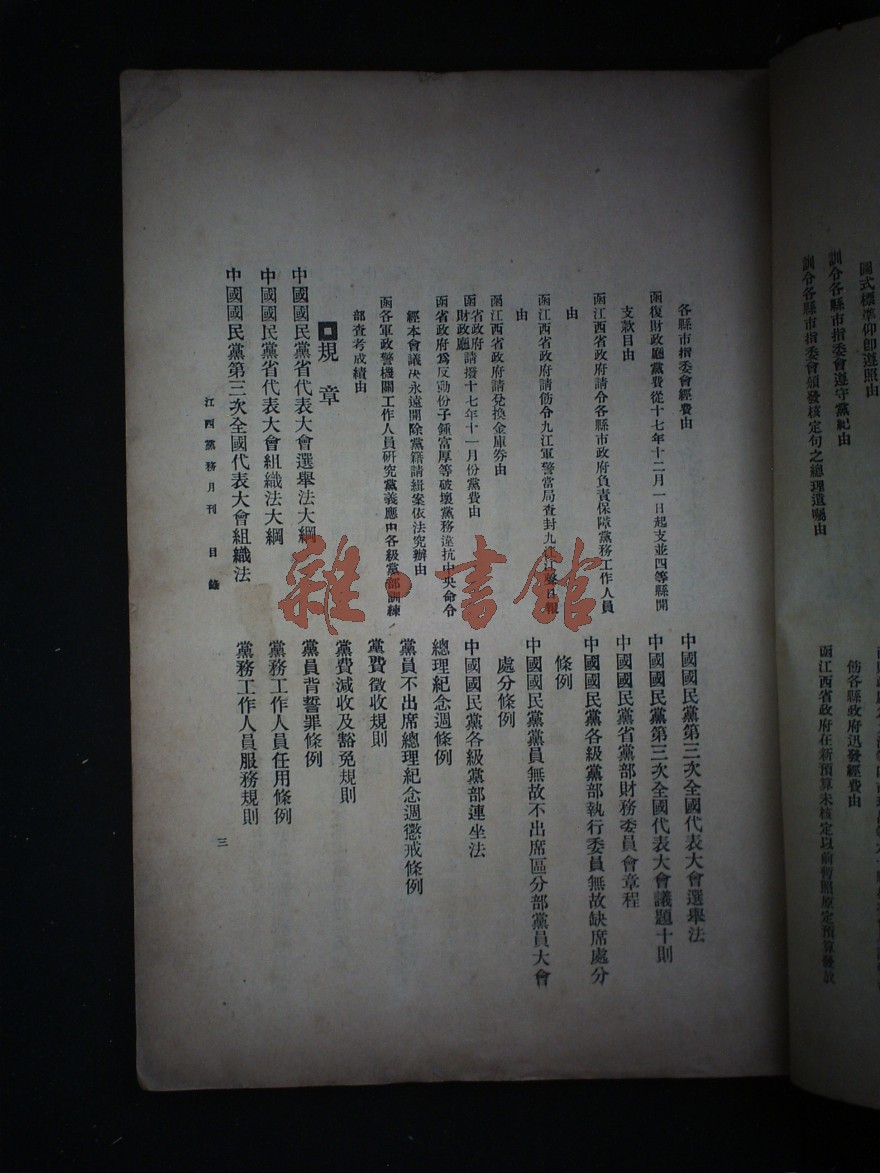 圖式標準仰即遵照由
訓令各縣市指委會遵守黨紀由
訓令各縣市指委會頒發核定句之總理遺囑由
飭各縣政府迅發經費由
函江西省政府在新預算未核定以前暫照原定預算發放
各縣市指委會經費由
函復財政廳黨費從十七年十二月一日起支並四等縣開
支款目由
函江西省政府請令各縣市政府負責保障黨務工作人員
由
函江西省政府請飭令九江軍警當局查封九江江聲日報
由
函江西省政府請兌換金庫券由
函省政府財政廳請撥十七年十一月份黨費由
函省政府爲反動份子鍾富厚等破壞黨務違抗中央命令
經本會議决永遠開除黨籍請緝案依法究辦由
函各軍政警機關工作人員研究黨義應由各級黨部訓練
部查考成績由
規章
中國國民黨省代表大會選舉法大綱
中國國民黨省代表大會組織法大綱
中國國民黨第三次全國代表大會組織法
中國國民黨第三次全國代表大會選舉法
中國國民黨第三次全國代表大會議題十則
中國國民黨省黨部財務委員會章程
中國國民黨各級黨部執行委員無故缺席處分
條例
中國國民黨黨員無故不出席區分部黨員大會
處分條例
中國國民黨各級黨部連坐法
總理紀念週條例
黨員不出席總理紀念週懲戒條例
黨費徵收規則
黨費減收及豁免規則
黨員背誓罪條例
黨務工作人員任用條例
黨務工作人員服務規則
江西黨務月刊 目錄
三
雜書館